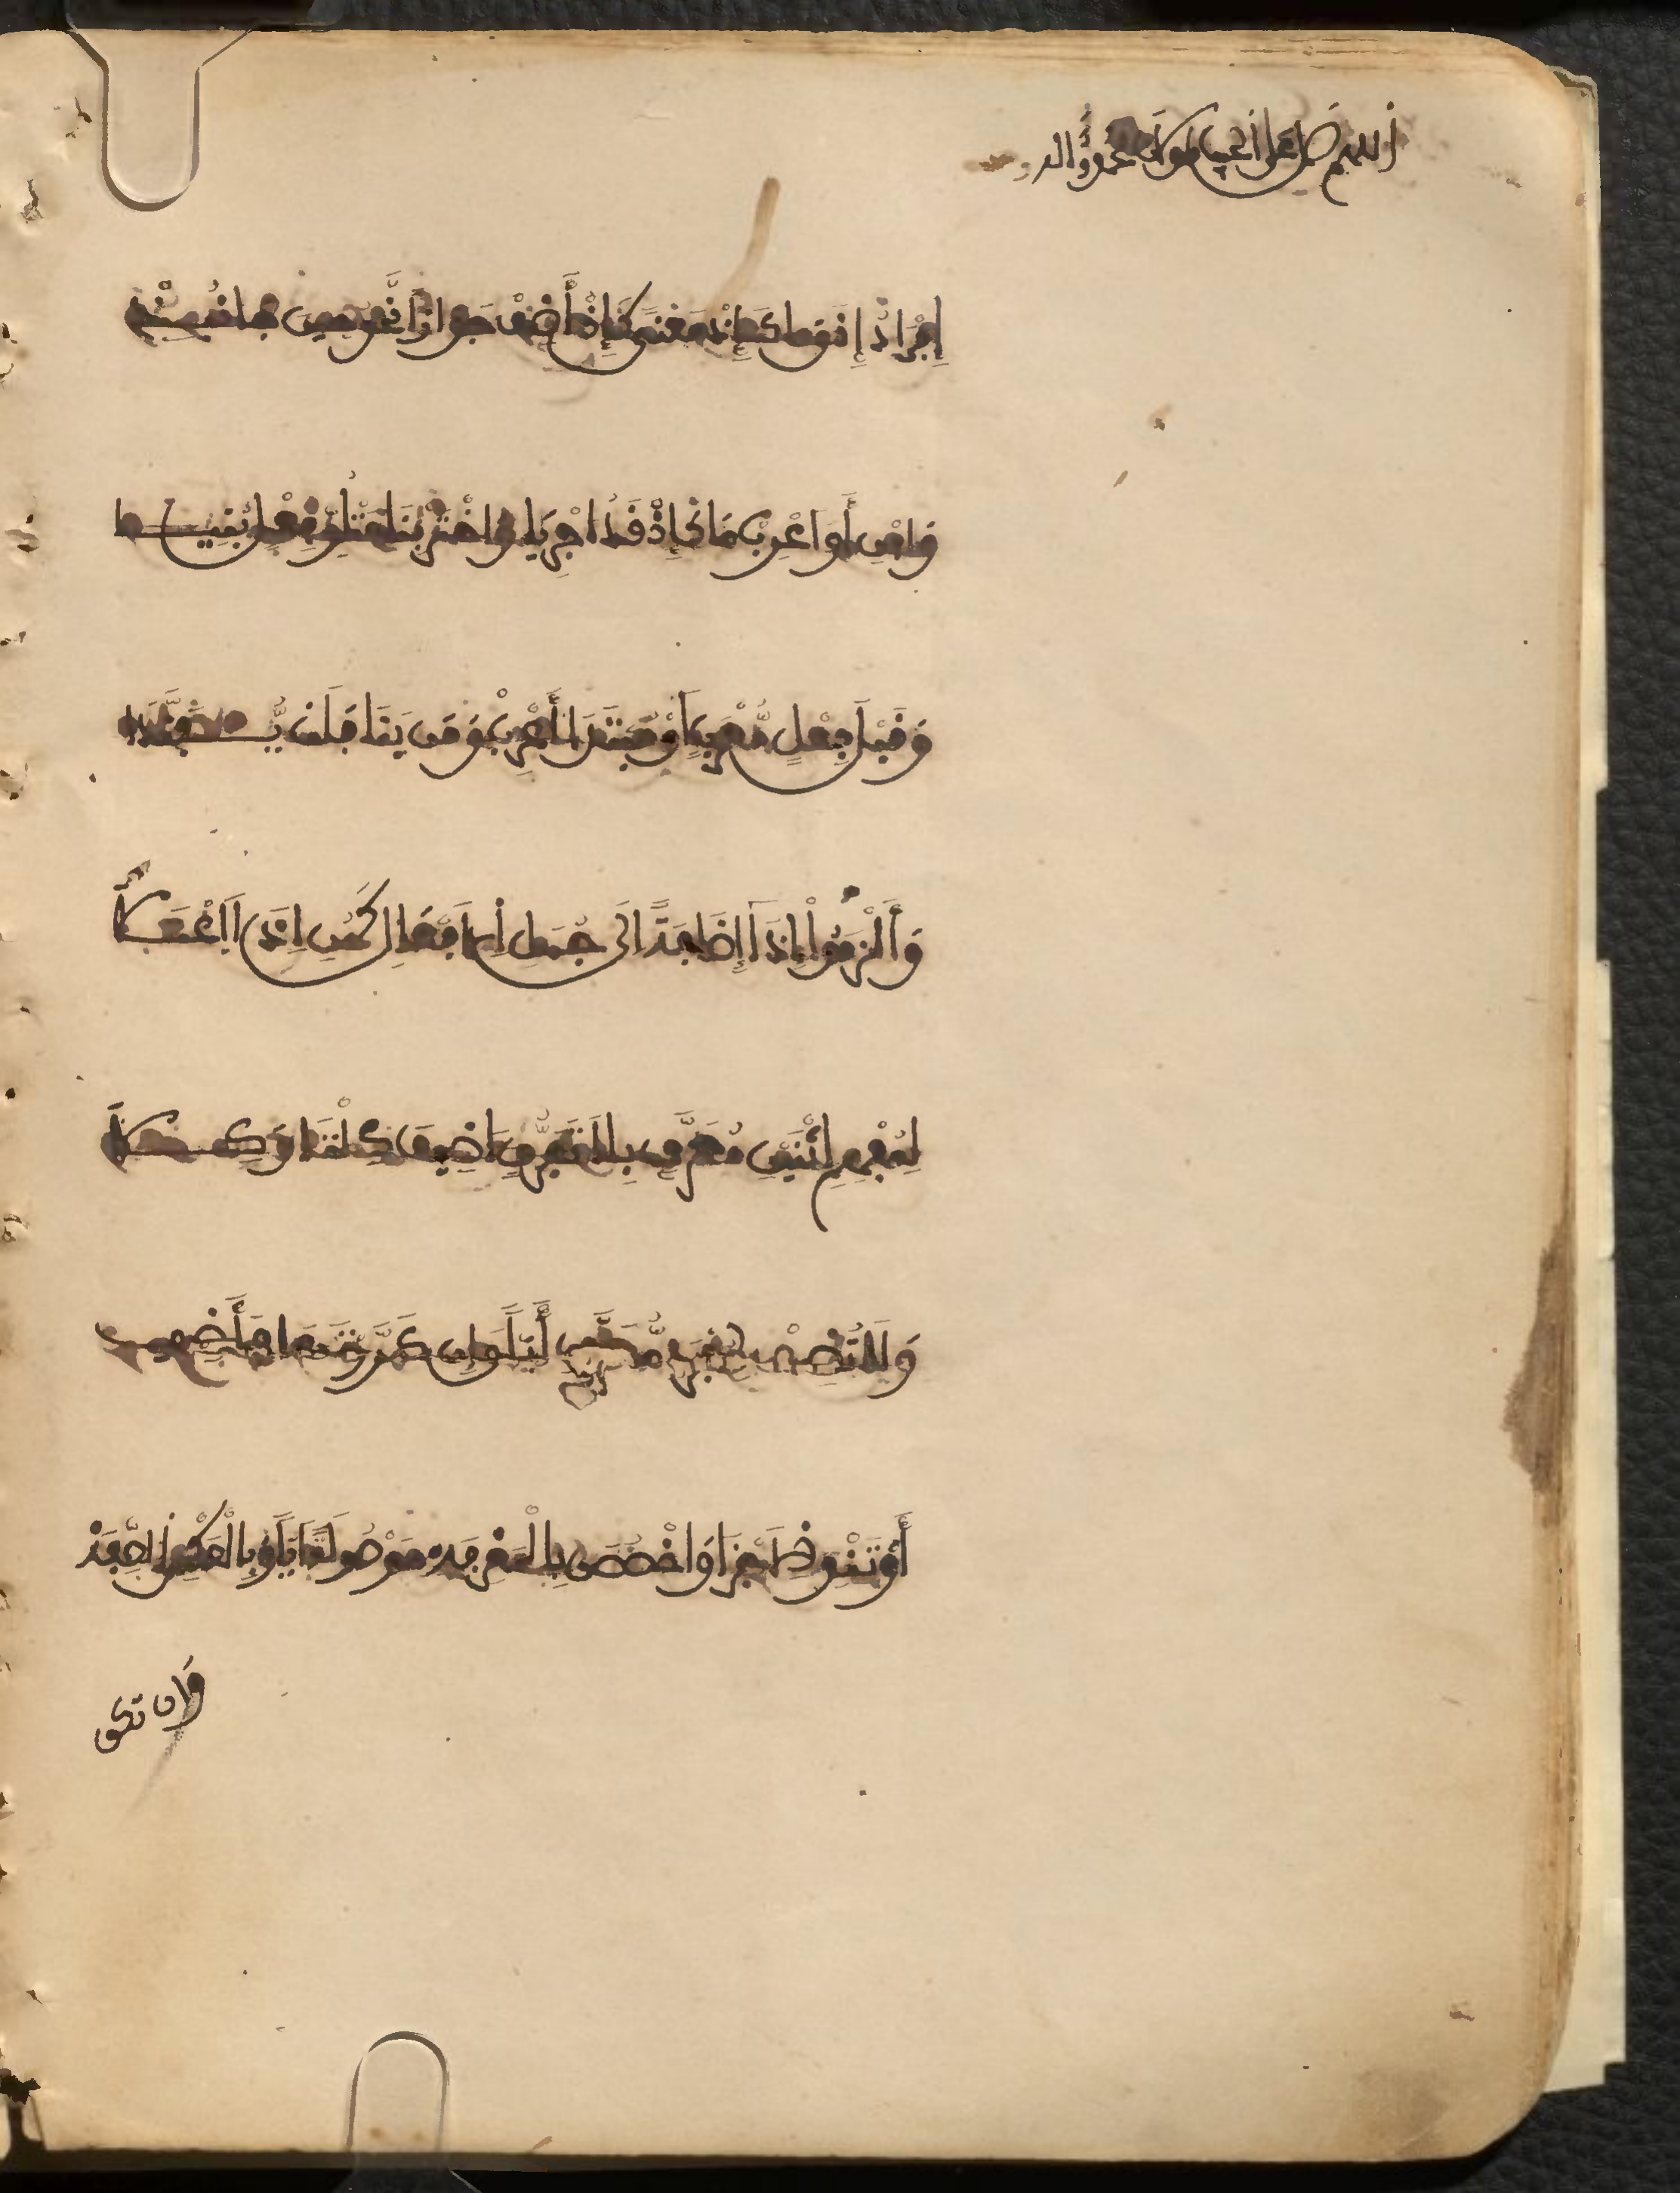 اللهم صل على محمد واله
إِفْرَادُ إِذْ وَمَا كَإِذْ مَعْنًى كَإِذْ أَضِفْ جَوَازًا نَّحْوُ حِينَ جَا نُبِذْ
وَابْنِ أَوَ اعْرِبْ مَا كَإِذْ قَدُ اجْرِيَا وَاخْتَرْ بِنَا مَتْلُوِّ فِعْلٍ بُنِيَا
وَقَبْلَ فِعْلٍ مُّعْرَبٍ أَوْ مُبْتَدَا أَعْرِبْ وَمَن بَنَا فَلَن يُّفَنَّدَا
وَأَلْزَمُواْ إِذَا إِضَافَةً الَى جُمَلِ اَلَافْعَالِ كَهُنِ اِذَا اَاعْتَلَى
لِمُفْهِمِ اثْنَيْنِ مُعَرَّفٍ بِلَا تَفَرُّقٍ اضِيفَ كِلْتَا وَكِلَا
وَلَا تُضِفْ لِمُفْرَدٍ مُّعَرَّفِ أَيًّا وَإِن كَرَّرْتَهَا فَأَضِفِ
أَوْ تَنْوِ الَاجْزَا وَاخْصُصَنْ بِالْمَعْرِفَهْ مَوْصُولَةً أَيًّا وَبِالْعَكْسِ الصِّفَهْ
وإن تكن